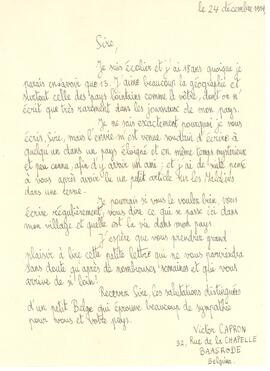 le 24 décembre
Sire,
Je suis écolier et j'ai 18 ans quoique je
parais n'en avoir que 13. J'aime beaucoup la géographie et
surtout celle des pays lointains comme le vôtre, dont on n'
écrit que très rarement dans les journaux de mon pays.
Je ne sais exactement pourquoi je vous
écris, Sire, mais l'envie m'est venue soudain d'écrire à
quelqu'un dans un pays éloigné et en même temps mystérieux
et peu connu, afin d'y avoir un ami; et j'ai de suite pensé
à vous après avoir lu un petit article sur les Maldives
dans une revue.
Je pourrais si vous le voulez bien, vous
écrire régulièrement, vous dire ce qui se passe ici dans
mon village et quelle est la vie dans mon pays.
J'espère que vous prendrez grand
plaisir à lire cette petite lettre qui ne vous parviendra
sans doute qu'après de nombreuses semaines et qui vous
arrive de si loin!
Recevez Sire, les salutations distinguées
d'un petit Belge qui éprouve beaucoup de sympathie
pour vous et votre pays.
Victor CAPRON
32, Rue de la CHAPELLE
BAASRODE
Belgique